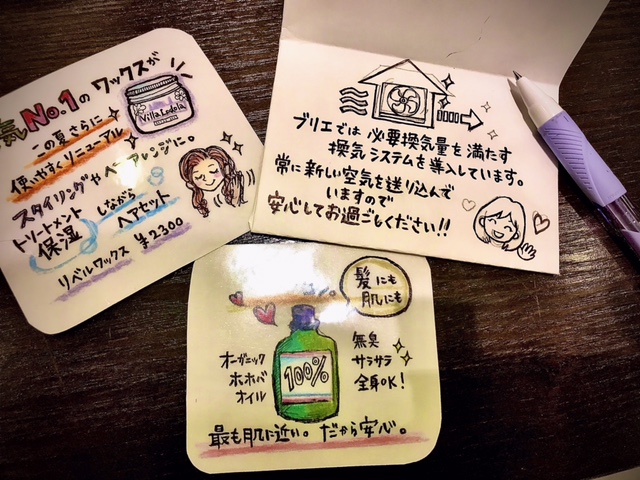 気No.1のワックスが
この夏さらに
使いやすくリニューアル
Villa Lodola
スタイリングやヘアアレンジに。
トリートメント
しながら
保湿
ヘアセット
リベルワックス ¥2300
ブリエでは必要換気量を満たす
換気システムを導入しています。
常に新しい空気を送り込んで
いますので
安心してお過ごしください!!
髪にも
肌にも
オーガニック
ホホバ
オイル
100%
無臭
サラサラ
全身OK!
最も肌に近い。だから安心。